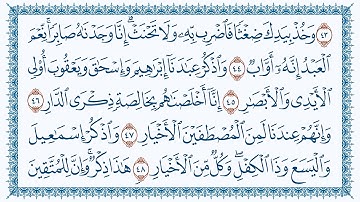 ٤٣ وَخُذْ بِيَدِكَ ضِغْثًا فَاضْرِب بِّهِۦ وَلَا تَحْنَثْ ۗ إِنَّا وَجَدْنَٰهُ صَابِرًا ۚ نِّعْمَ
ٱلْعَبْدُ ۖ إِنَّهُۥٓ أَوَّابٌ ٤٤ وَٱذْكُرْ عِبَٰدَنَآ إِبْرَٰهِيمَ وَإِسْحَٰقَ وَيَعْقُوبَ أُو۟لِى
ٱلْأَيْدِى وَٱلْأَبْصَٰرِ ٤٥ إِنَّآ أَخْلَصْنَٰهُم بِخَالِصَةٍ ذِكْرَى ٱلدَّارِ ٤٦
وَإِنَّهُمْ عِندَنَا لَمِنَ ٱلْمُصْطَفَيْنَ ٱلْأَخْيَارِ ٤٧ وَٱذْكُرْ إِسْمَٰعِيلَ
وَٱلْيَسَعَ وَذَا ٱلْكِفْلِ ۖ وَكُلٌّ مِّنَ ٱلْأَخْيَارِ ٤٨ هَٰذَا ذِكْرٌ ۚ وَإِنَّ لِلْمُتَّقِينَ